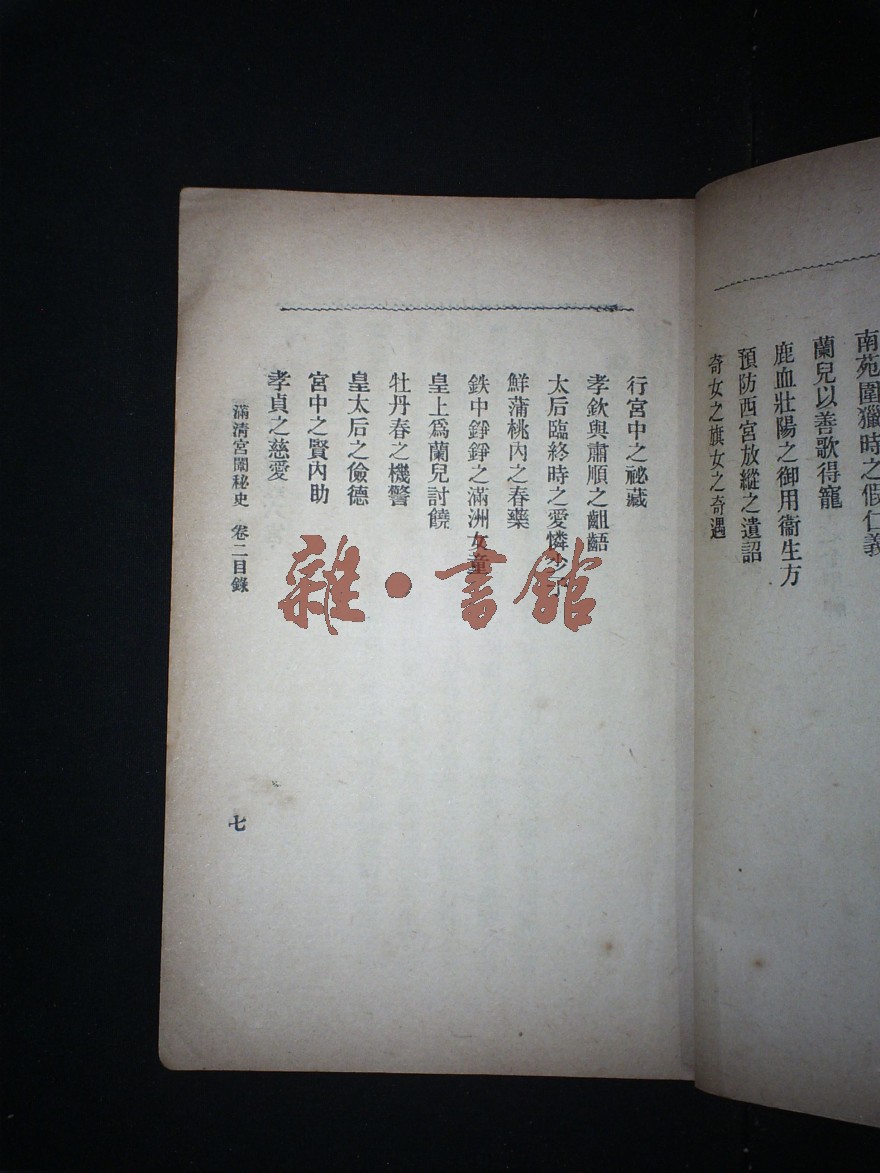 南苑圍獵時之假仁義
蘭兒以善歌得寵
鹿血壯陽之御用衞生方
預防西宮放縱之遺詔
奇女之旗女之奇遇
行宮中之祕藏
孝欽與肅順之齟齬
太后臨終時之愛憐少子
鮮蒲桃內之春藥
鉄中錚錚之滿洲女童
皇上爲蘭兒討饒
牡丹春之機警
皇太后之儉德
宮中之賢內助
孝貞之慈愛
滿清宮闈秘史 卷二目錄
七
雜·書館